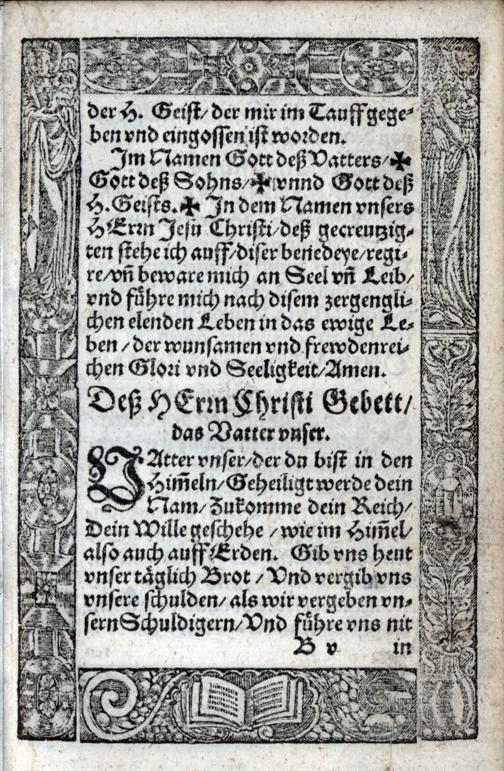 der H. Geist/ der mir im Tauff gege⸗
ben vnd eingossen ist worden.
Im Namen Gott deß Vatters/ ✠
Gott deß Sohns/ ✠ vnnd Gott deß
H. Geists. ✠ In dem Namen vnsers
HErrn Jesu Christi/ deß gecreutzig⸗
ten stehe ich auff/ diser benedeye/ regi⸗
re/ vn̄ beware mich an Seel vn̄ Leib/
vnd führe mich nach disem zergengli⸗
chen elenden Leben in das ewige Le⸗
ben/ der wunsamen vnd frewdenrei⸗
chen Glori vnd Seeligkeit/ Amen.
Deß HErrn Christi Gebett/
das Vatter vnser.
VAtter vnser/ der du bist in den
Him̄eln/ Geheiligt werde dein
Nam/ Zukomme dein Reich/
Dein Wille geschehe/ wie im Him̄el/
also auch auff Erden. Gib vns heut
vnser täglich Brot/ Vnd vergib vns
vnsere schulden/ als wir vergeben vn⸗
sern Schuldigern/ Vnd führe vns nit
B v in